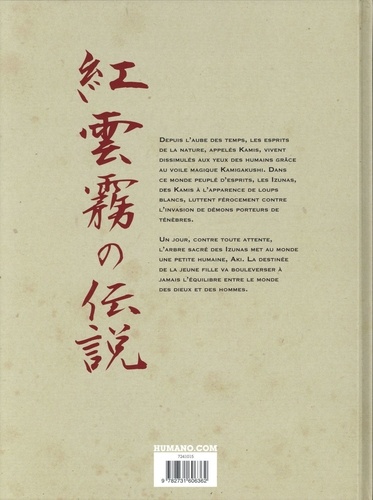 紅雲霧の伝説
DEPUIS L'AUBE DES TEMPS, LES ESPRITS
DE LA NATURE, APPELÉS KAMIS, VIVENT
DISSIMULÉS AUX YEUX DES HUMAINS GRÂCE
AU VOILE MAGIQUE KAMIGAKUSHI. DANS
CE MONDE PEUPLÉ D'ESPRITS, LES IZUNAS,
DES KAMIS À L'APPARENCE DE LOUPS
BLANCS, LUTTENT FÉROCEMENT CONTRE
L'INVASION DE DÉMONS PORTEURS DE
TÉNÈBRES.
UN JOUR, CONTRE TOUTE ATTENTE,
L'ARBRE SACRÉ DES IZUNAS MET AU MONDE
UNE PETITE HUMAINE, AKI. LA DESTINÉE
DE LA JEUNE FILLE VA BOULEVERSER À
JAMAIS L'ÉQUILIBRE ENTRE LE MONDE
DES DIEUX ET DES HOMMES.
HUMANO.COM
9 782731 606362